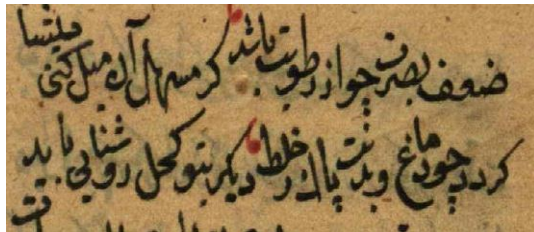 ضعف بصرت چو از رطوبت باشد کر مسهل آن میل کنی
کردد چو دماغ و بدنت پاک ز خلط دیکر بتو کحل روشنایی باید